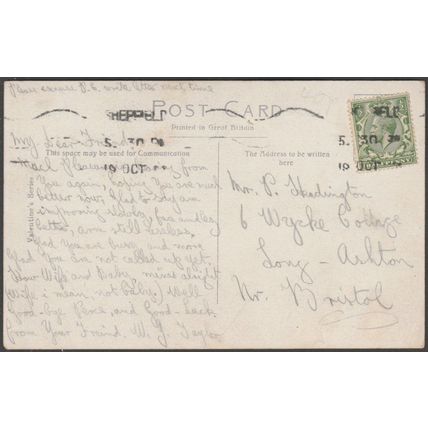 Please excuse P.C. write letter next time
SHEFFIELD
5. 30 PM
19 OCT
POST CARD
Printed in Great Britain
This space may be used for Communication
The Address to be written
here
Valentine's Series
My Dear Friend,
Much Pleasure from
You again, hoping You are much
better now, glad to say am
improving slowly, feet and leg
better, arm still useless
Glad You are busy, and more
glad You are not called up yet.
How Wife and Baby, mine's alright
(Wife i mean, not baby!) Well
Good-bye Percy, and Good-luck
From Your Friend. W. J. Taylor
Mr. P. Headington
6 Wycke Cottage
Long-Ashton
Nr. Bristol